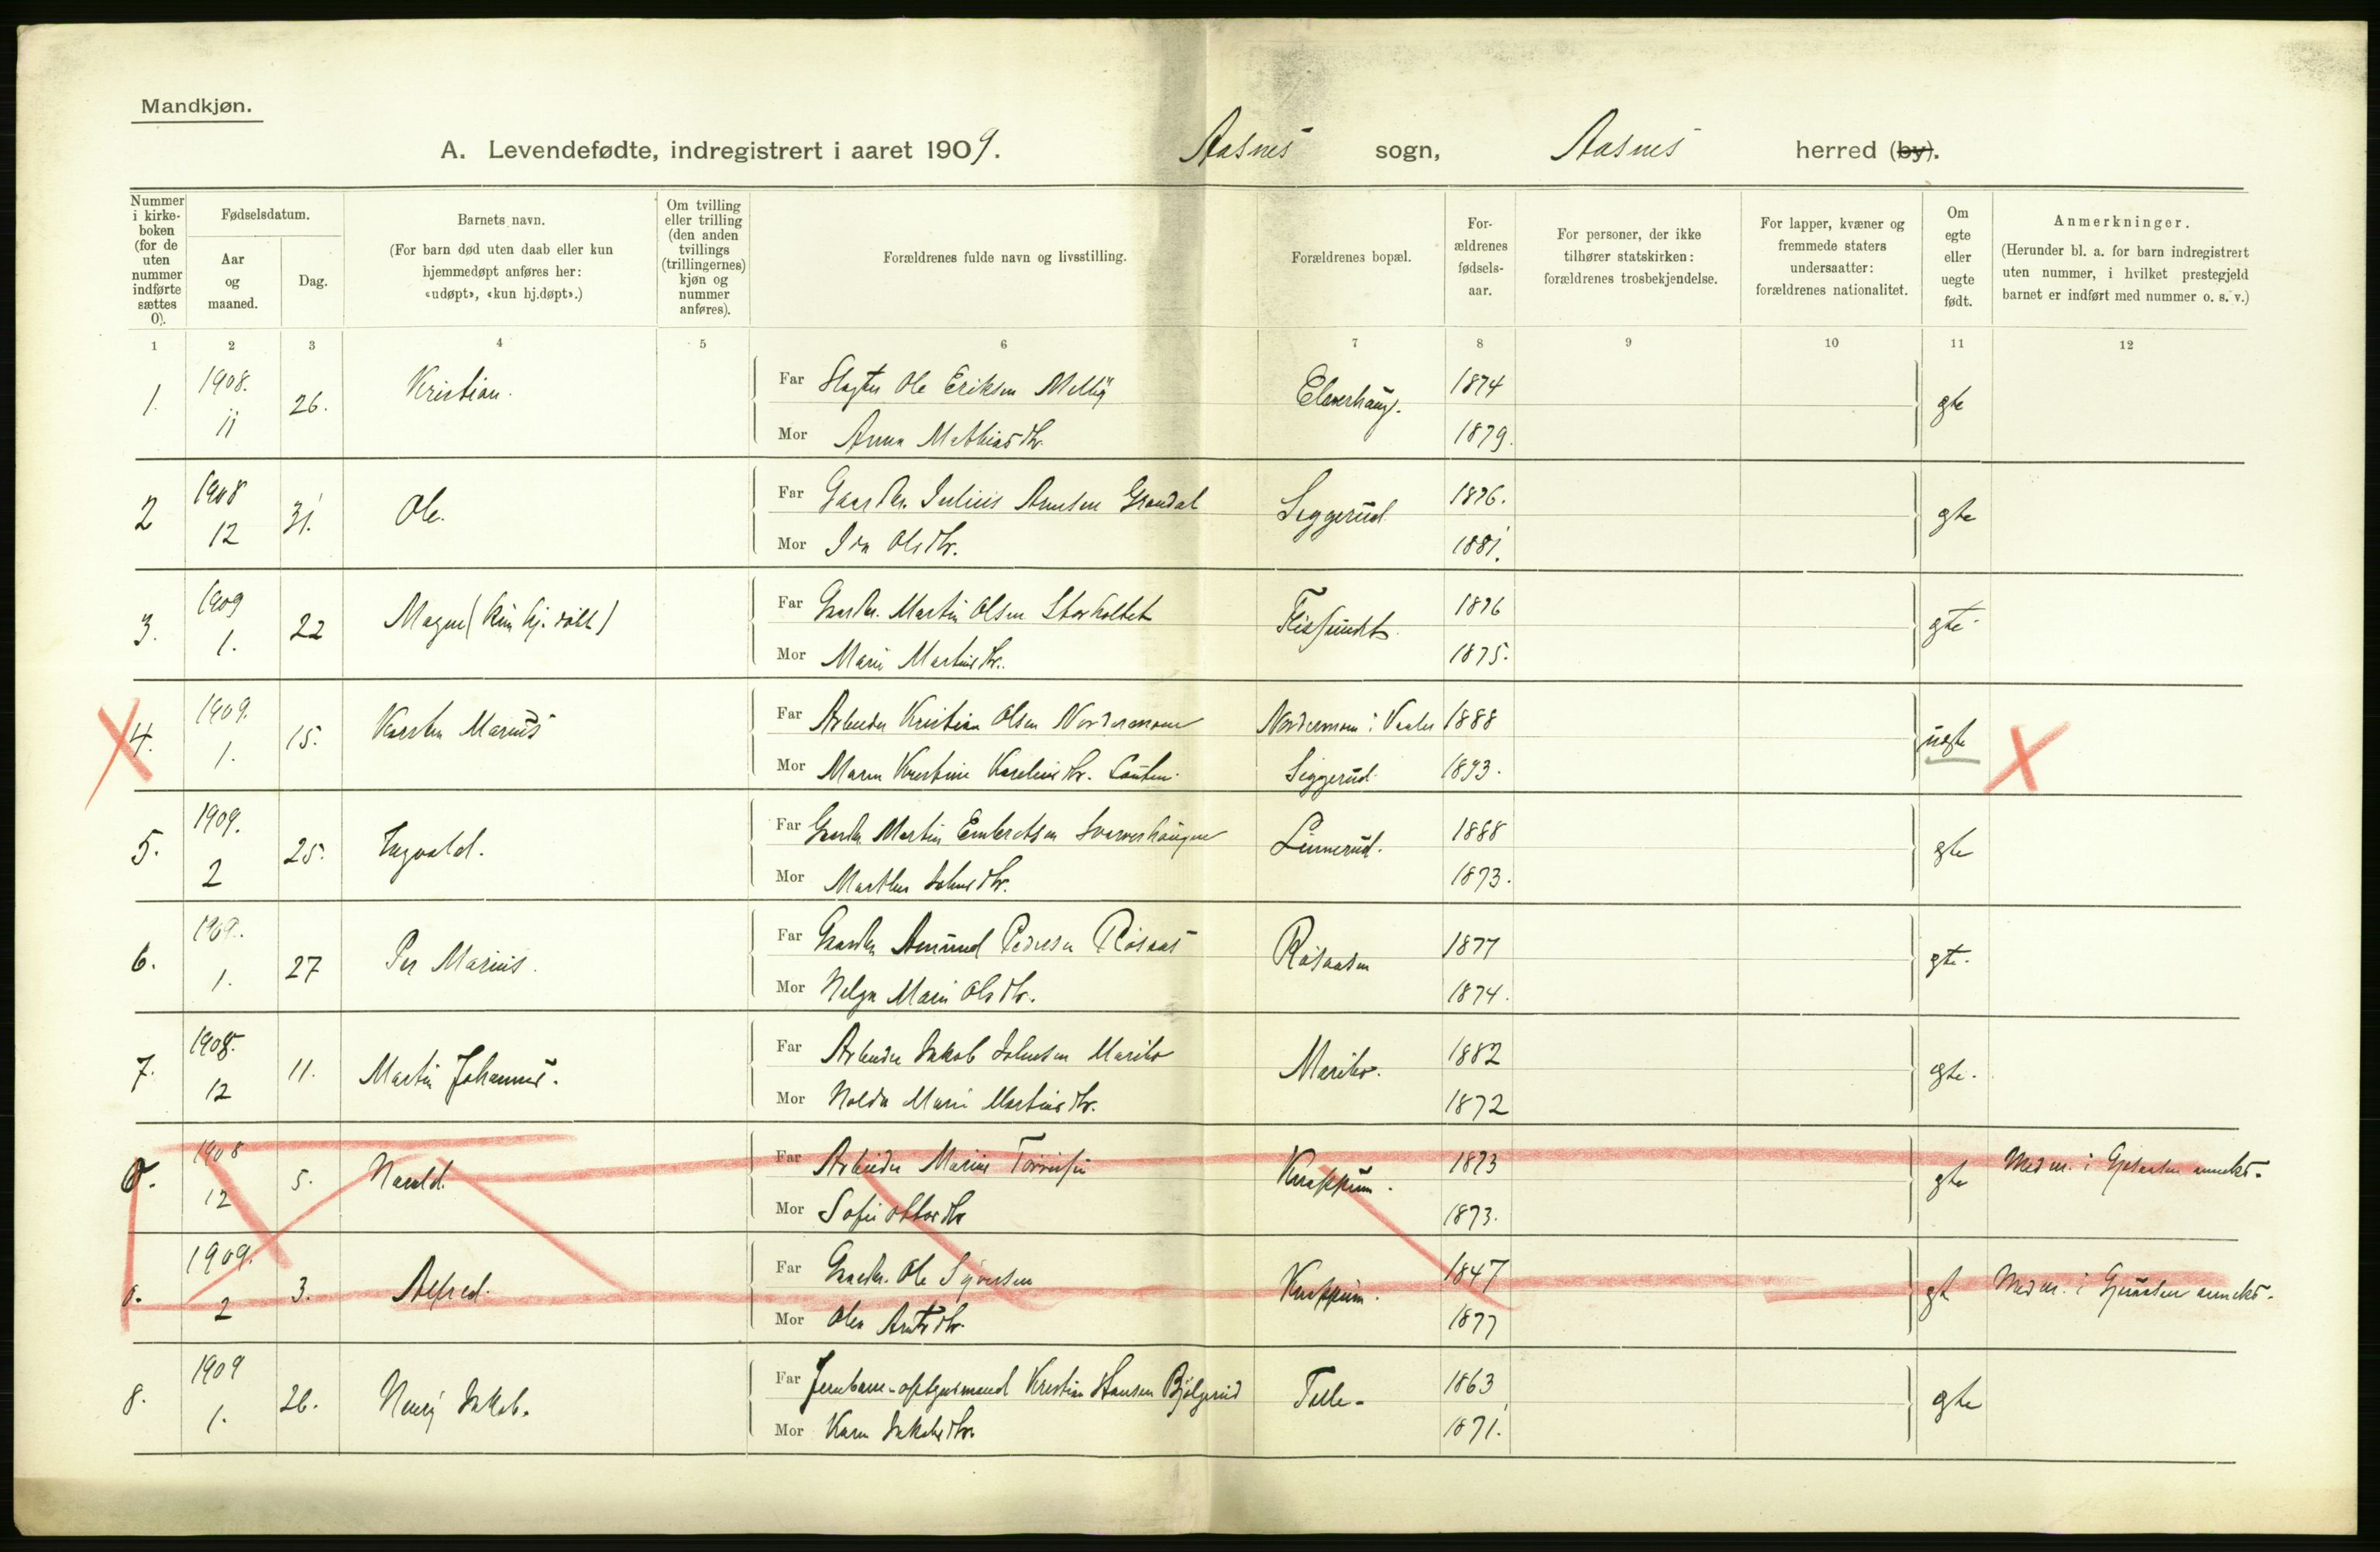 Mandkjøn.
A. Levendefødte, indregistrert i aaret 1909. Aasnes sogn, Aasnes herred (by).
Nummer i kirke-boken (for de uten nummer indførte sættes 0).
Fødselsdatum.
Aar og maaned.
Dag.
Barnets navn.
(For barn død uten daab eller kun hjemmedøpt anføres her: «udøpt», «kun hj.døpt».)
Om tvilling eller trilling (den anden tvillings (trillingernes) kjøn og nummer anføres).
Forældrenes fulde navn og livsstilling.
Forældrenes bopæl.
For-ældrenes fødsels-aar.
For personer, der ikke tilhører statskirken: forældrenes trosbekjendelse.
For lapper, kvæner og fremmede staters undersaatter: forældrenes nationalitet.
Om egte eller uegte født.
Anmerkninger.
(Herunder bl. a. for barn indregistrert uten nummer, i hvilket prestegjeld barnet er indført med nummer o. s. v.)
1 2 3 4 5 6 7 8 9 10 11 12
1. 1908. 11 26. Kristian. Far Ole Eriksen 1874 gte
Mor Anna Mathiasdtr. 1879.
2 1908 12 31. Ole. Far Gaardbr. Julius Arnesen Grandal Seggerud 1876. gte
Mor Ida Olsdtr. 1881.
3. 1909 1. 22 Magne (kun hj. døbt) Far Gaardbr. Martin Olsen Storholtet Flissundet 1876 gte
Mor Marie Martinsdtr. 1875.
4. 1909. 1. 15. Karsten Marius Far Arbeider Kristian Olsen Nordermoen Nordermoen i Vaaler 1888 uegte
Mor Maren Kristine Karelius dtr. Seggerud. 1893.
5. 1909. 2 25. Ingvald. Far Gaardbr. Martin Embretsen Linnerud. 1888 gte
Mor Marthe Johnsdtr. 1873.
6. 1909. 1. 27 Per Marius. Far Gaardbr. Amund Pedersen Rösaas Rösaasen 1877 gte.
Mor Helga Marie Olsdtr. 1874.
7. 1908. 12 11. Martin Johannes. Far Arbeider Jakob Johnsen Maribo Maribo. 1882 gte.
Mor Holda Marie Martinsdtr. 1872
0. 1908 12 5. Harald. Far Arbeider Marius Knappum. 1873 gte Med nr. i Gjesaasen anneks.
Mor Sofie Ottosdtr 1873.
0. 1909. 2 3. Alfred. Far Gaardbr. Ole Syversen Knappum. 1847 gt Med nr. i Gjesaasen anneks.
Mor Olea dtr. 1877
8. 1909 1. 26. Henry Jakob. Far Jernbane-opsynsmand Kristian Hansen Bjölgerud 1863 gte
Mor Karen Jakobsdtr. 1871.